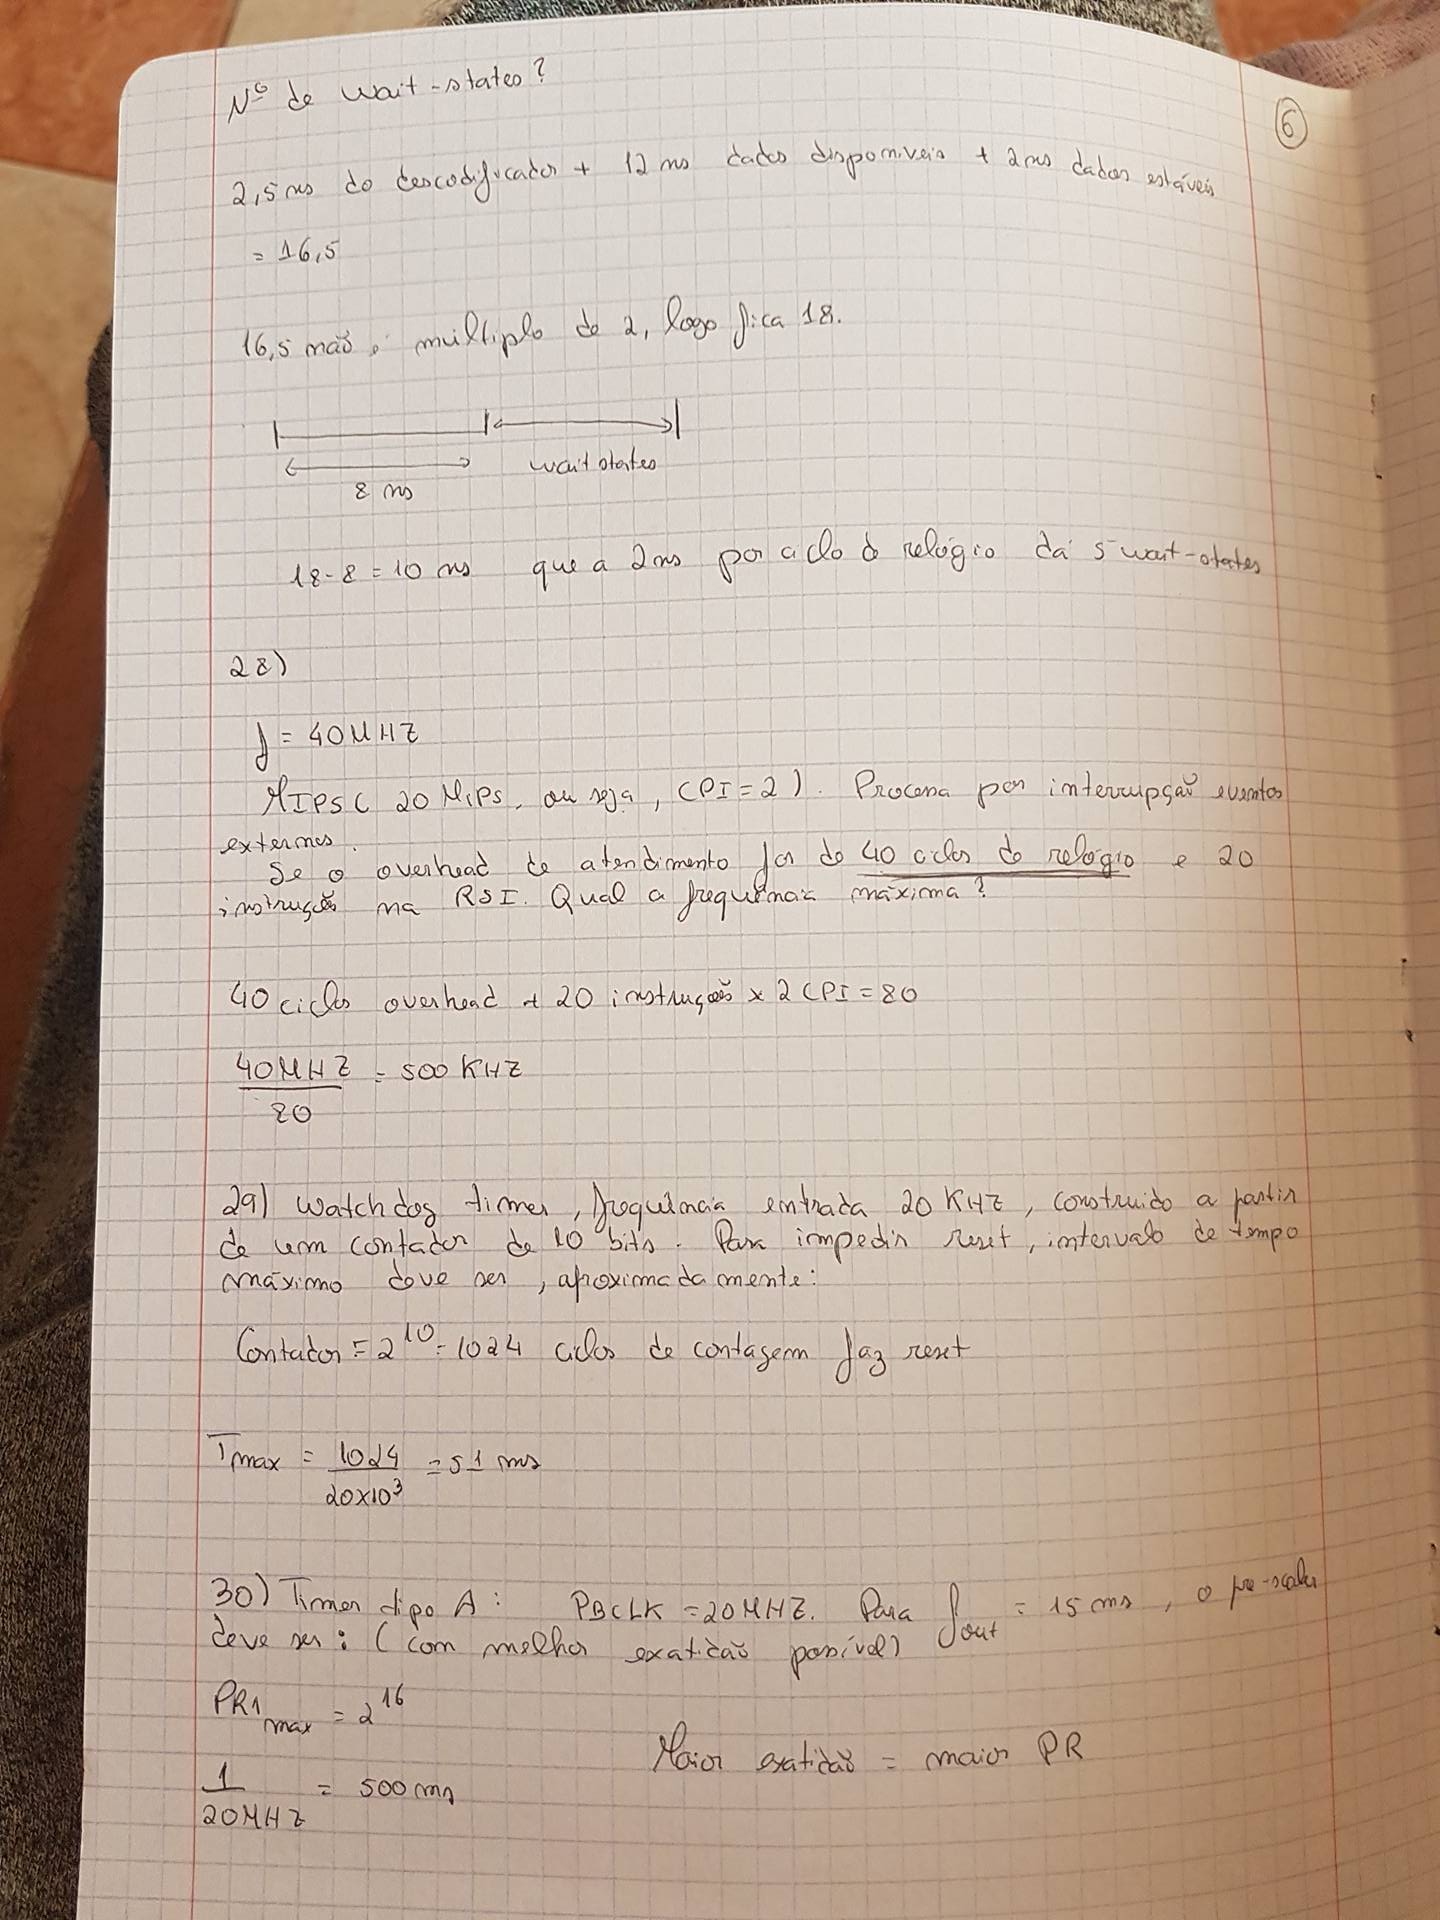 Nº de wait-states?
6
2,5ns do descodificador + 12 ns dados disponíveis + 2ns dados estáveis
= 16,5
16,5 não é múltiplo de 2, logo fica 18.
wait states
8 ns
18-8 = 10 ns que a 2ns por ciclo de relógio dá 5 wait-states
28)
f = 40MHZ
MIPS( 20 MIPS, ou seja, CPI=2). Processa por interrupção eventos
externos.
Se o overhead de atendimento for de 40 ciclos de relógio e 20
instruções na RSI. Qual a frequência máxima?
40 ciclos overhead + 20 instruções x 2 CPI = 80
40MHZ = 500 KHZ
80
29) Watchdog timer, frequência entrada 20 KHZ, construido a partir
de um contador de 10 bits. Para impedir reset, intervalo de tempo
máximo deve ser, aproximadamente:
Contador = 2^10 = 1024 ciclos de contagem faz reset
Tmax = 1024 = 51 ms
20x10^3
30) Timer tipo A: PBCLK = 20MHZ. Para fout = 15 ms, o pre-scaler
deve ser: (com melhor exatidão possível)
PR1max = 2^16
Maior exatidão = maior PR
1 = 500 ns
20MHZ